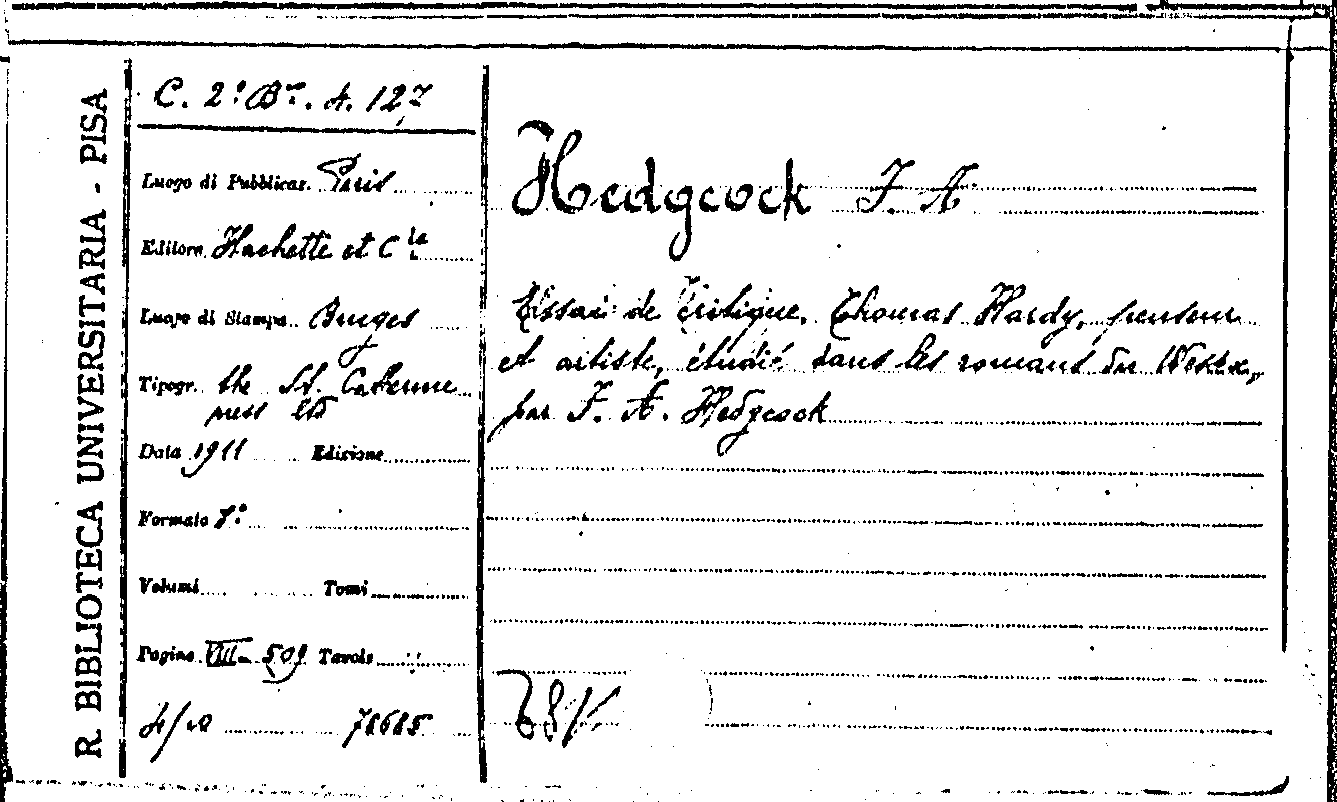 R. BIBLIOTECA UNIVERSITARIA - PISA
C. 2° Br. 4. 127
Luogo di Pubblicaz. Paris
Editore Hachette et Cie
Luogo di Stampa Bruges
Tipogr. the St. Catherine
press ltd
Data 1911 Edizione
Formato 8°
Volumi Tomi
Pagine VIII-509 Tavole
78685
Hedgcock F. A
Essai de Critique. Thomas Hardy, penseur
et artiste, étudié dans les romans du Wessex,
par F. A. Hedgcock